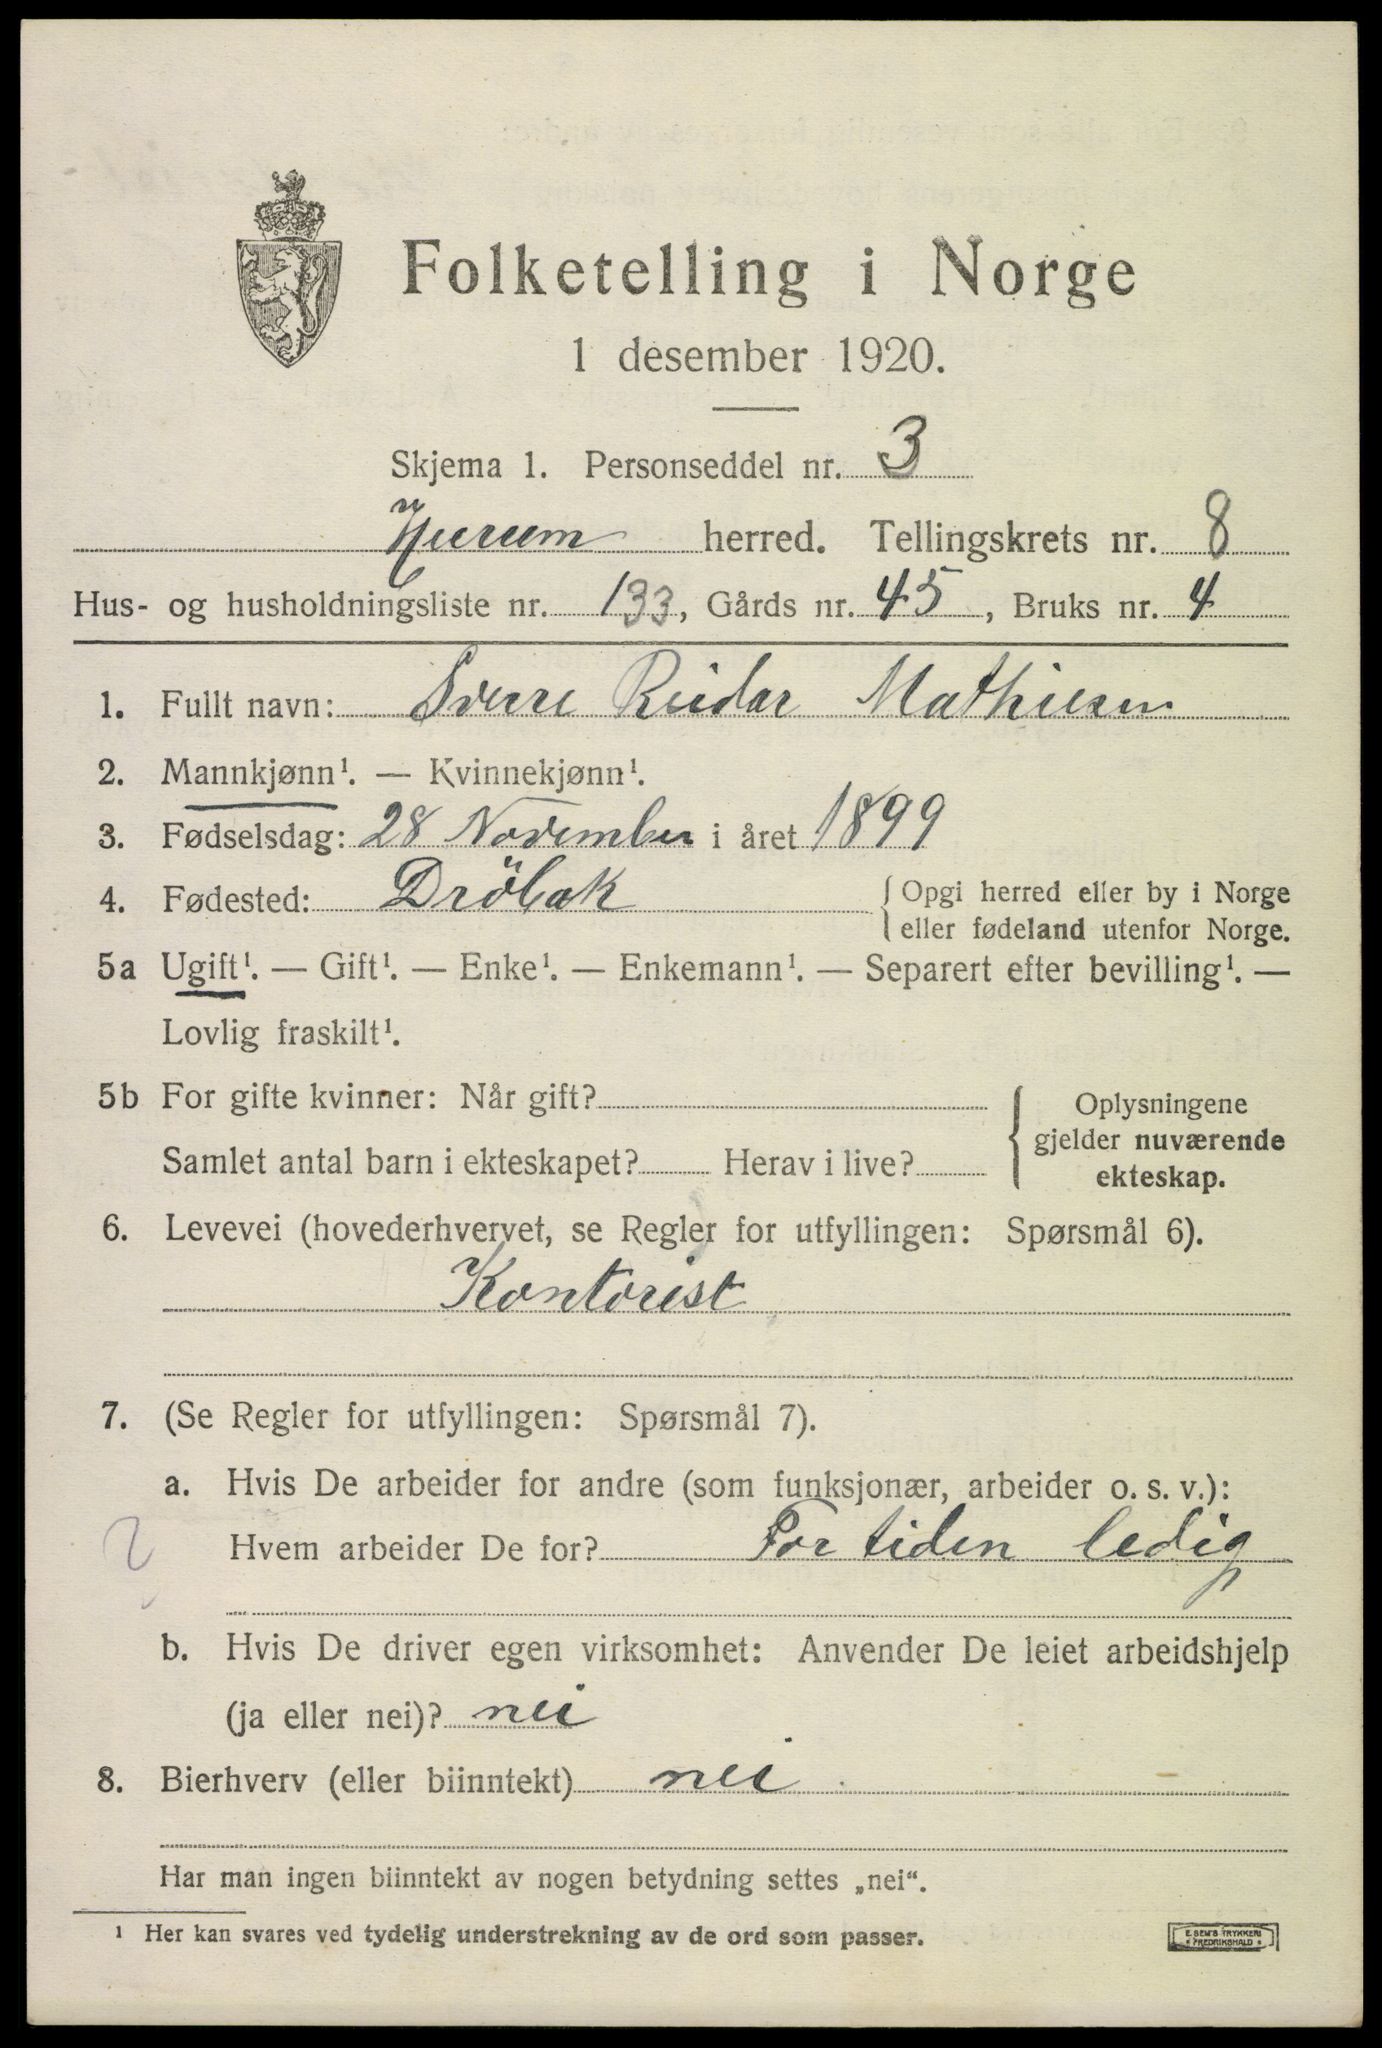 Folketelling i Norge
1 desember 1920.
Skjema 1. Personseddel nr. 3
Hurum herred. Tellingskrets nr. 8
Hus- og husholdningsliste nr. 133, Gårds nr. 45, Bruks nr. 4
1. Fullt navn: Sverre Reidar Mathiesen
2. Mannkjønn¹. — Kvinnekjønn¹.
3. Fødselsdag: 28 November i året 1899
4. Fødested: Dröbak {Opgi herred eller by i Norge
eller fødeland utenfor Norge.
5a Ugift¹. — Gift¹. — Enke¹. — Enkemann¹. — Separert efter bevilling¹. —
Lovlig fraskilt¹.
5b For gifte kvinner: Når gift?
Samlet antal barn i ekteskapet? Herav i live?
{Oplysningene
gjelder nuværende
ekteskap.
6. Levevei (hovederhvervet, se Regler for utfyllingen: Spørsmål 6).
Kontorist
7. (Se Regler for utfyllingen: Spørsmål 7).
a. Hvis De arbeider for andre (som funksjonær, arbeider o. s. v.):
Hvem arbeider De for? For tiden ledig
b. Hvis De driver egen virksomhet: Anvender De leiet arbeidshjelp
(ja eller nei)? nei
8. Bierhverv (eller biinntekt) nei
Har man ingen biinntekt av nogen betydning settes „nei“.
¹ Her kan svares ved tydelig understrekning av de ord som passer.
E. SEM'S TRYKKERI
FREDRIKSHALD